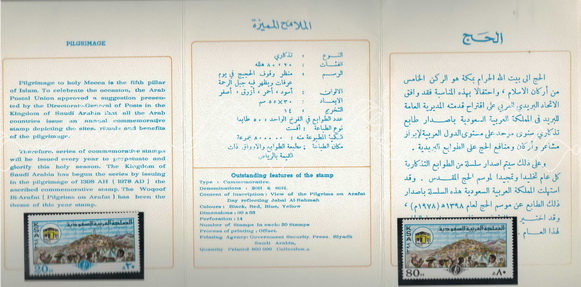 PILGRIMAGE
Pilgrimage to holy Mecca is the fifth pillar
of Islam. To celebrate the occasion, the Arab
Postal Union approved a suggestion presen-
ted by the Directorate-General of Posts in the
Kingdom of Saudi Arabia that all the Arab
countries issue an annual commemorative
stamp depicting the sites, rituals and benefits
of the pilgrimage.
Therefore, series of commemorative stamps
will be issued every year to propagate and
glorify this holy season. The Kingdom of
Saudi Arabia has begun the series by issuing
in the pilgrimage of 1398 AH ( 1978 AD ) the
ascribed commemorative stamp. The Wuqoof
Bi-Arafat ( Pilgrims on Arafat ) has been the
theme of this year stamp.
الملامح المميزة
النوع : تذكاري
الفئات : ٢٠ ، ٨٠ هللة
الرسم : منظر وقوف الحجيج في يوم
عرفات ويظهر فيه جبل الرحمة
الالوان : أسود ، أحمر ، أزرق ، أصفر
الابعاد :
التخريم : ١٤
عدد الطوابع في الفرخ الواحد ٥٠ طابعا
نوع الطباعة : أفست
مكان الطباعة : مطبعة الطوابع والاوراق ذات
القيمة بالرياض
Outstanding features of the stamp
Type : Commemorative.
Denominations : 20H & 80H.
Content of Inscription : View of the Pilgrims on Arafat
Day reflecting Jabal Al-Rahmah
Colours : Black, Red, Blue, Yellow
Dimensions :
Perforation : 14
Number of Stamps in each sheet : 50 Stamps
Process of printing : Offset.
Printing Agency: Government Security Press Riyadh
Saudi Arabia,
Quantity Printed
الحج
الحج الى بيت الله الحرام بمكة هو الركن الخامس
من أركان الاسلام ، واحتفالا بهذه المناسبة فقد وافق
الاتحاد البريدي العربي على اقتراح قدمته المديرية العامة
للبريد في المملكة العربية السعودية باصدار طابع
تذكاري سنوي موحد على مستوى الدول العربية لإبراز
مشاعر وأركان ومنافع الحج على الطوابع البريدية .
وعلى ذلك سيتم اصدار سلسلة من الطوابع التذكارية
كل عام تخليدا وتمجيدا لموسم الحج المقدس . وقد
استهلت المملكة العربية السعودية هذه السلسلة باصدار
ذلك الطابع عن موسم الحج لعام ١٣٩٨هـ (١٩٧٨م)
وقد اختير
لهذا العام
المملكة العربية السعودية
20
٢٠
المملكة العربية السعودية
80
٨٠